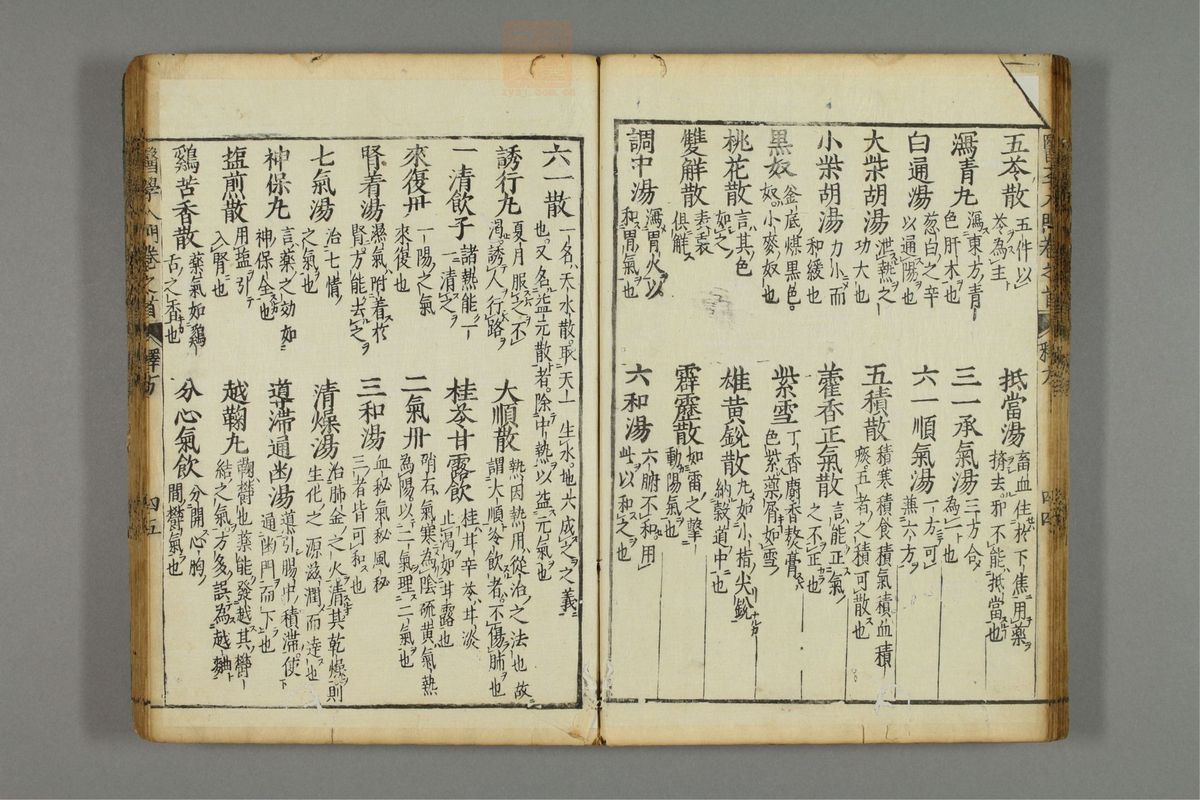 五苓散 五件以苓為主
抵當湯 畜血住於下焦用藥擠去邪不能抵當也
瀉青丸 瀉東方青色肝木也
三一承氣湯 三方合為一也
白通湯 葱白之辛以通陽也
六一順氣湯 一方可兼六方
大柴胡湯 泄熱之功大也
五積散 積寒積食積氣積血積痰五者之積可散也
小柴胡湯 力小而和緩也
藿香正氣散 言能正氣之不正也
黒奴 釜底煤黒色奴小麥奴也
紫雪 丁香麝香熬膏色紫藥屑如雪
桃花散 言其色如之
雄黄鋭散 丸如小指尖鋭納穀道中也
雙解散 表裏俱解
霹靂散 如雷之擊動陽氣也
調中湯 瀉胃火以和胃氣也
六和湯 六腑不和用此以和之也
六一散 一名天水散取天一生水地六成之之義
也又名益元散者除中熱以益元氣也
誘行丸 夏月服之不渴誘人行路
大順散 熱因熱用從治之法也故謂大順冷飲者不傷肺也
一清飲子 諸熱能一一清之
桂苓甘露飲 桂甘辛苓甘淡止渴如甘露也
來復丹 一陽之氣來復也
二氣丹 硝石氣寒為陰硫黄氣熱為陽以二氣理二氣也
腎着湯 濕氣附着於腎方能去之
三和湯 血秘氣秘風秘三者皆可和也
七氣湯 治七情之氣也
清燥湯 治肺金之火清其乾燥則生化之源滋潤而達也
神保丸 言藥之効如神保全也
導滯通幽湯 導引腸中積滯使通幽門而下也
鹽煎散 用鹽引入腎也
越鞠丸 鞠欝也藥能發越其欝結之氣也方多誤為越䵷
鷄苦香散 藥氣如鷄舌之香也
分心氣飲 分開心胸間欝氣也
醫學入門卷之首 釋方 四五
釋方 四四